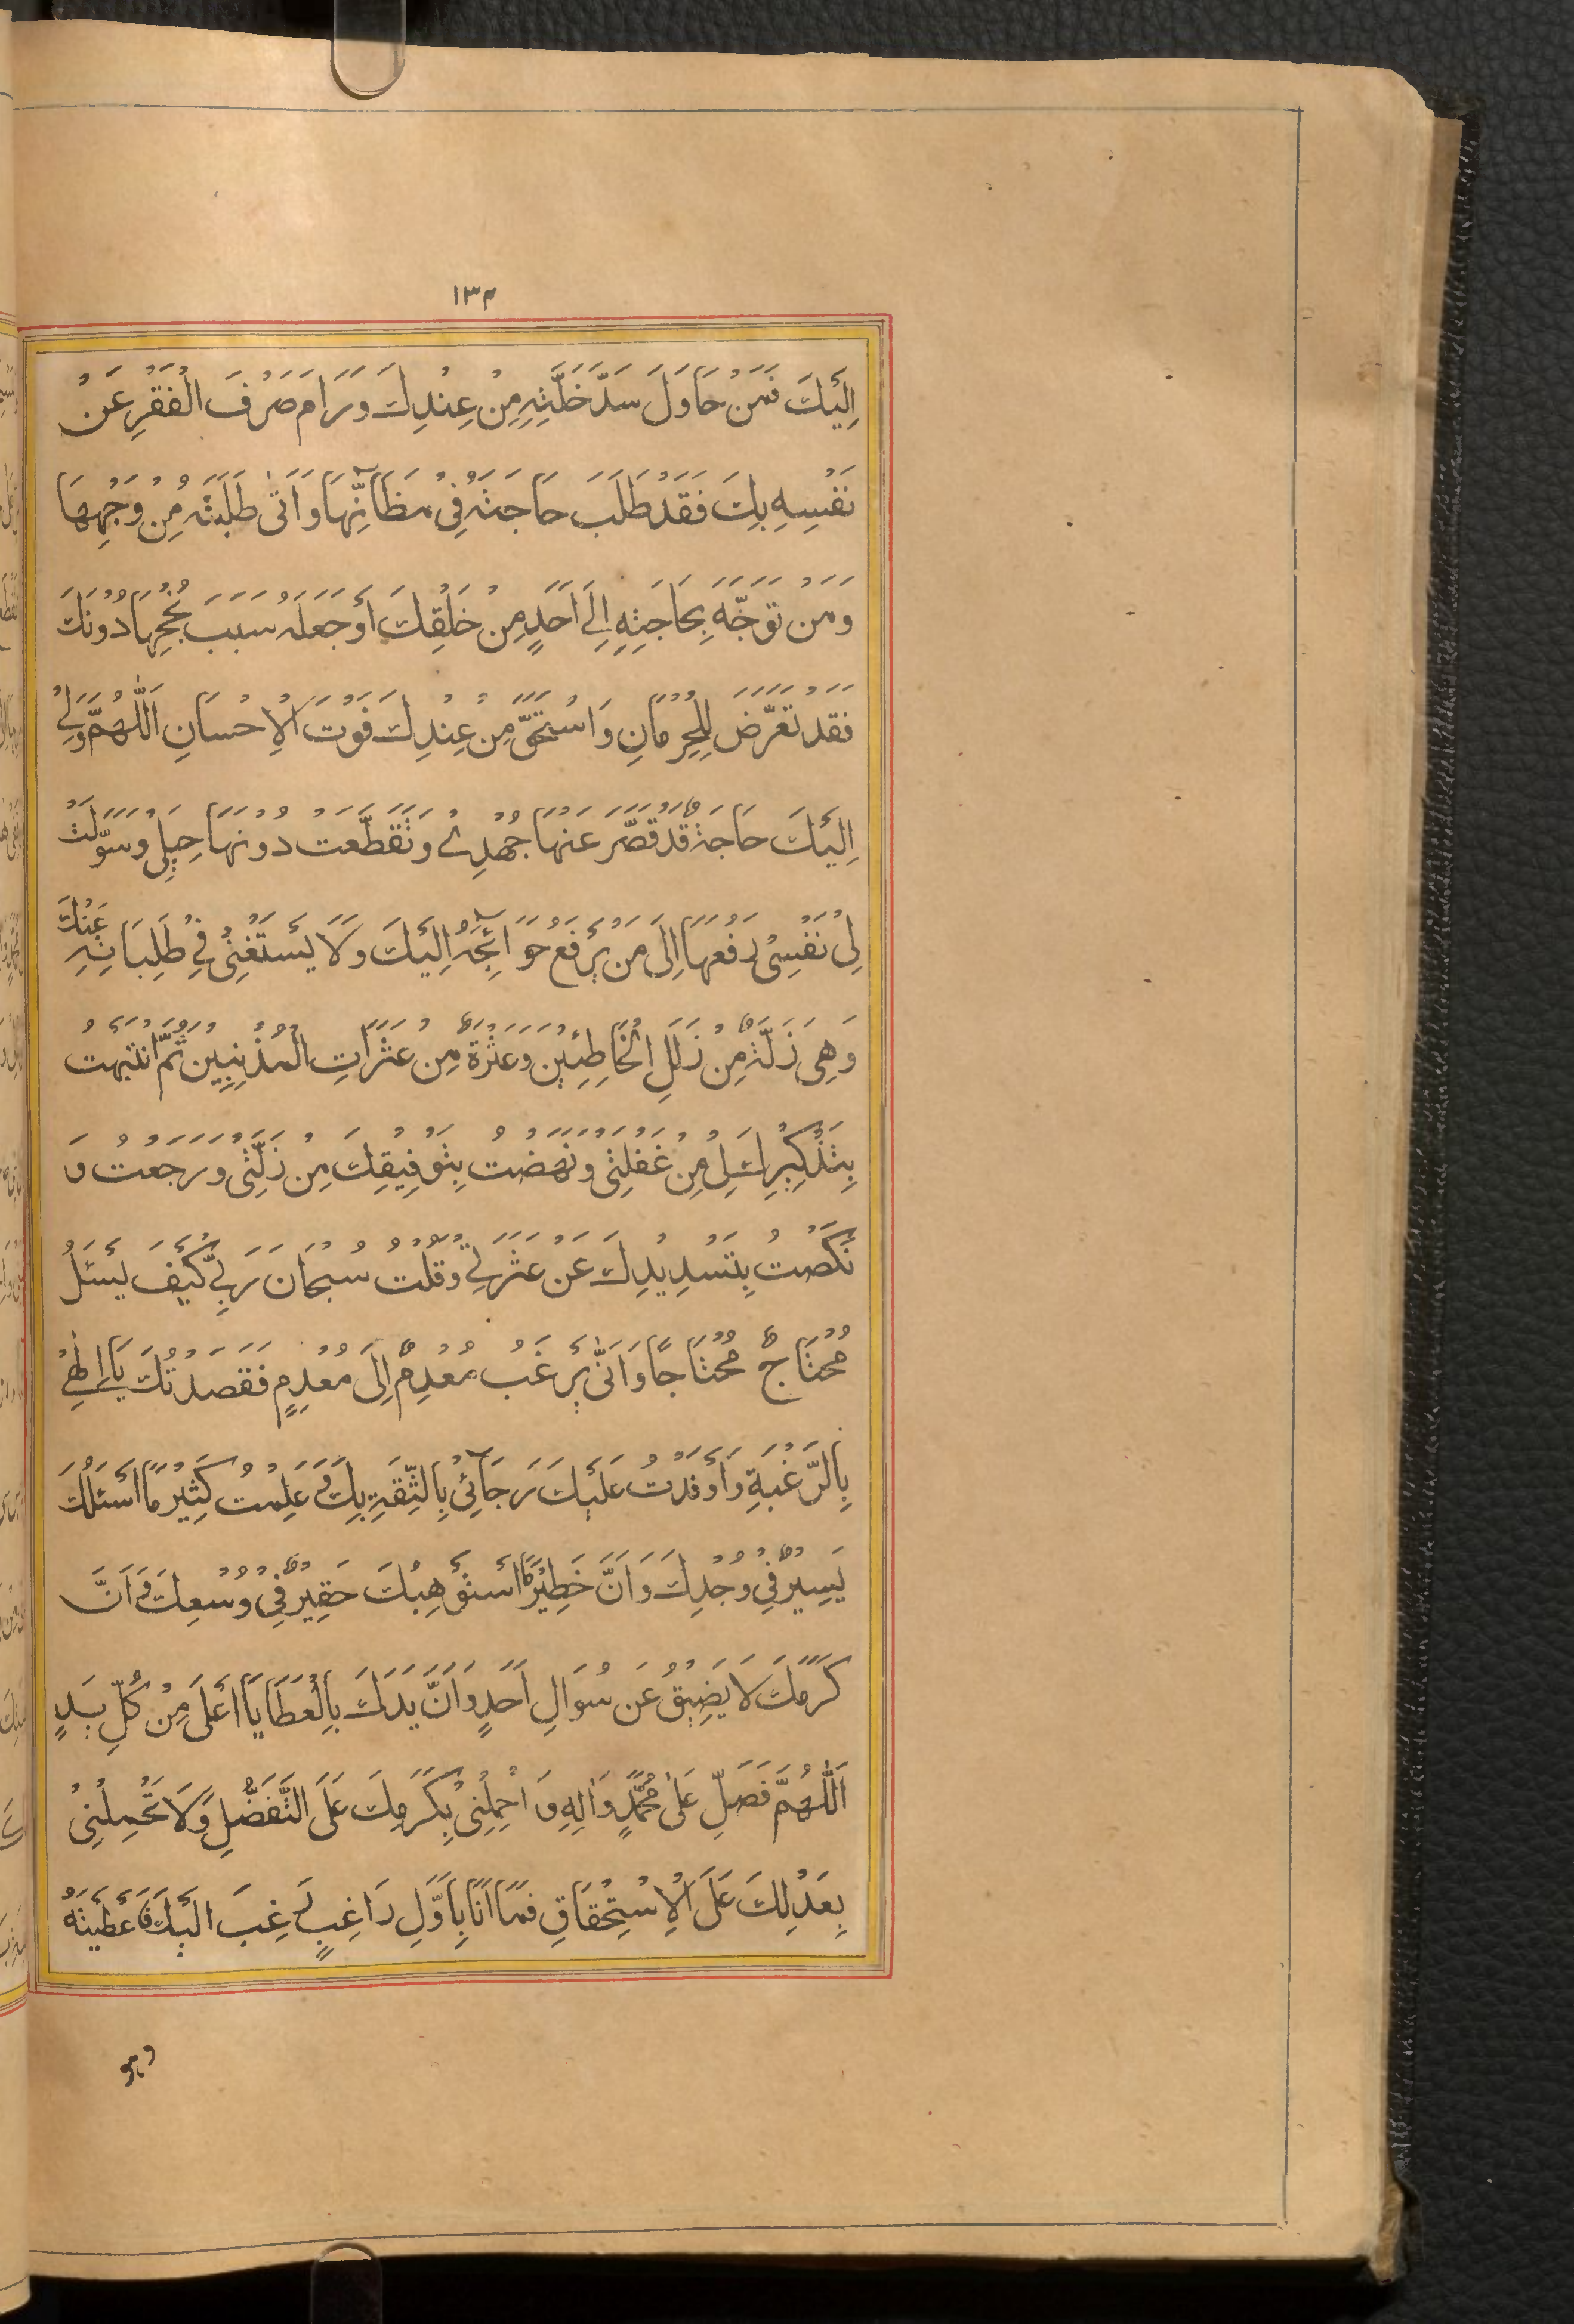 ١٣٤
اِلَيْكَ فَمَنْ حَاوَلَ سَدَّ خَلَّتِهِ مِنْ عِنْدِكَ وَرَامَ صَرْفَ الْفَقْرِ عَنْ
نَفْسِهِ بِكَ فَقَدْ طَلَبَ حَاجَتَهُ فِيْ مَظَآنِّهَا وَاَتٰى طَلِبَتَهُ مِنْ وَجْهِهَا
وَمَنْ تَوَجَّهَ بِحَاجَتِهِ اِلَى اَحَدٍ مِنْ خَلْقِكَ أَوْ جَعَلَهُ سَبَبَ نُجْحِهَا دُوْنَكَ
فَقَدْ تَعَرَّضَ لِلْحِرْمَانِ وَاسْتَحَقَّ مِنْ عِنْدِكَ فَوْتَ الْاِحْسَانِ اَللّٰهُمَّ وَلِيْ
اِلَيْكَ حَاجَةٌ قَدْ قَصَّرَ عَنْهَا جُهْدِيْ وَتَقَطَّعَتْ دُوْنَهَا حِيَلِيْ وَسَوَّلَتْ
لِيْ نَفْسِيْ رَفْعَهَا اِلَى مَنْ يَرْفَعُ حَوَآئِجَهُ اِلَيْكَ وَلَا يَسْتَغْنِيْ فِيْ طَلِبَاتِهِ عَنْكَ
وَهِيَ زَلَّةٌ مِنْ زَلَلِ الْخَاطِئِيْنَ وَعَثْرَةٌ مِنْ عَثَرَاتِ الْمُذْنِبِيْنَ ثُمَّ انْتَبَهْتُ
بِتَذْكِيْرِكَ لِيْ مِنْ غَفْلَتِيْ وَنَهَضْتُ بِتَوْفِيْقِكَ مِنْ زَلَّتِيْ وَرَجَعْتُ وَ
نَكَصْتُ بِتَسْدِيْدِكَ عَنْ عَثْرَتِيْ وَقُلْتُ سُبْحَانَ رَبِّيْ كَيْفَ يَسْئَلُ
مُحْتَاجٌ مُحْتَاجًا وَاَنّٰى يَرْغَبُ مُعْدِمٌ اِلَى مُعْدِمٍ فَقَصَدْتُكَ يَا اِلٰهِيْ
بِالرَّغْبَةِ وَأَوْفَدْتُ عَلَيْكَ رَجَآئِيْ بِالثِّقَةِ بِكَ وَعَلِمْتُ كَثِيْرَ مَا أَسْئَلُكَ
يَسِيْرٌ فِيْ وُجْدِكَ وَاَنَّ خَطِيْرَ مَا أَسْتَوْهِبُكَ حَقِيْرٌ فِيْ وُسْعِكَ وَاَنَّ
كَرَمَكَ لَا يَضِيْقُ عَنْ سُوَالِ اَحَدٍ وَاَنَّ يَدَكَ بِالْعَطَايَا اَعْلَى مِنْ كُلِّ يَدٍ
اَللّٰهُمَّ فَصَلِّ عَلٰى مُحَمَّدٍ وَاٰلِهِ وَ احْمِلْنِيْ بِكَرَمِكَ عَلَى التَّفَضُّلِ وَلَا تَحْمِلْنِيْ
بِعَدْلِكَ عَلَى الْاِسْتِحْقَاقِ فَمَا اَنَا بِاَوَّلِ رَاغِبٍ رَغِبَ اِلَيْكَ فَأَعْطَيْتَهُ